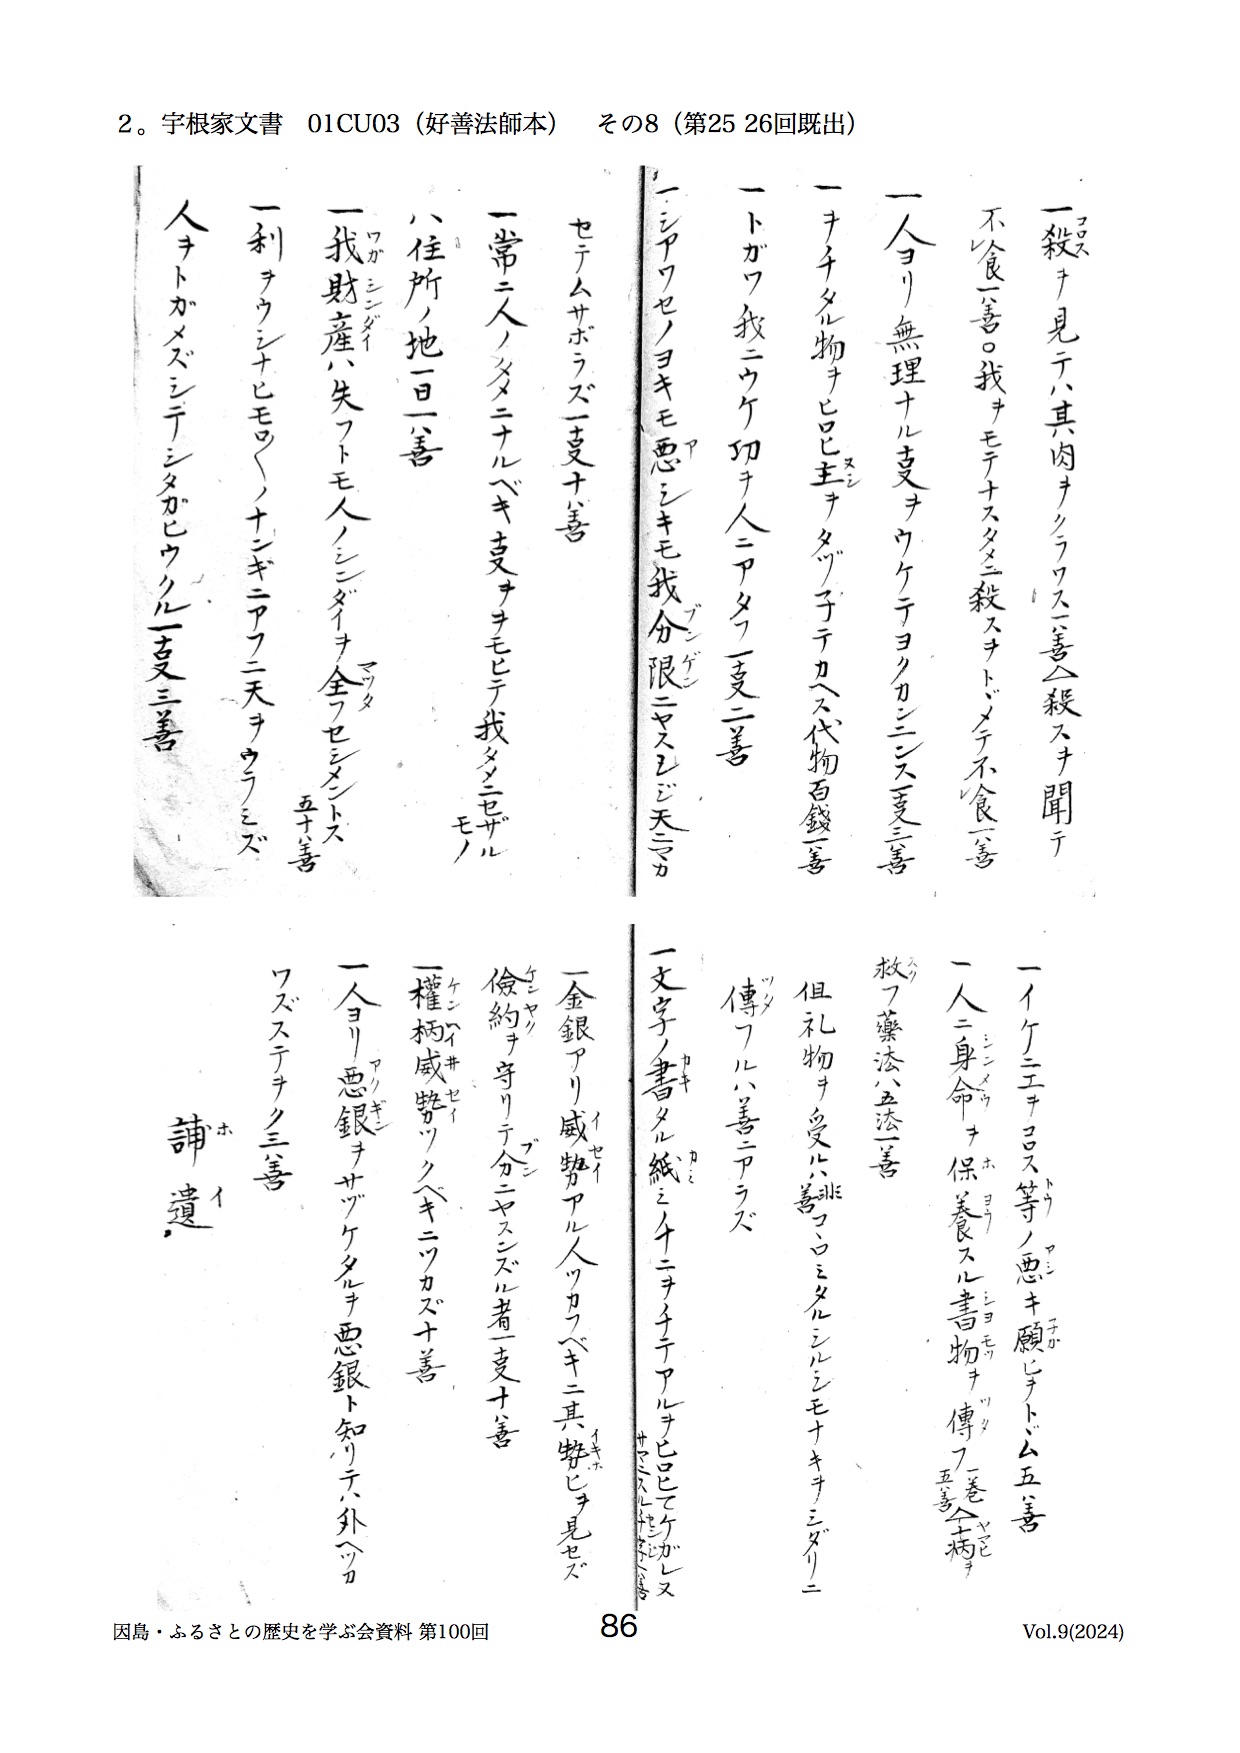 2。宇根家文書　01CU03（好善法師本）　その8（第25 26回既出）
一殺ヲ見テハ其肉ヲクラワス一善△殺スヲ聞テ
不食一善○我ヲモテナスタメニ殺スヲトヾメテ不食一善
一人ヨリ無理ナル叓ヲウケテヨクカンニンス一叓三善
一ヲチタル物ヲヒロヒ主ヲタヅ子テカヘス代物百錢一善
一トガワ我ニウケ功ヲ人ニアタフ一叓二善
一シアワセノヨキモ悪シキモ我分限ニヤスンジ天ニマカ
セテムサボラズ一叓十善
一常ニ人ノタメニナルベキ叓ヲヲモヒテ我タメニセザルモノ
ハ住所ノ地一日一善
一我財産ハ失フトモ人ノシンダイヲ全フセシメントス五十善
一利ヲウシナヒモロ〱ノナンギニアフニ天ヲウラミズ
人ヲトガメズシテシタガヒウクル一叓三善
一イケニエヲコロス等ノ悪キ願ヒヲトヾム五善
一人ニ身命ヲ保養スル書物ヲ傳フ一巻五善△病ヲ
救フ藥法ハ五法一善
但礼物ヲ受ルハ非善コヽロミタルシルシモナキヲミダリニ
傳フルハ善ニアラズ
一文字ノ書タル紙ミチニヲチテアルヲヒロヒテケガレヌ
一金銀アリ威勢アル人ツカフベキニ其勢ヒヲ見セズ
儉約ヲ守リテ分ニヤスンズル者一叓十善
一權柄威勢ツクベキニツカズ十善
一人ヨリ悪銀ヲサヅケタルヲ悪銀ト知リテハ外ヘツカ
ワズステヲク三善
誧遺
因島・ふるさとの歴史を学ぶ会資料 第100回
86
Vol.9(2024)